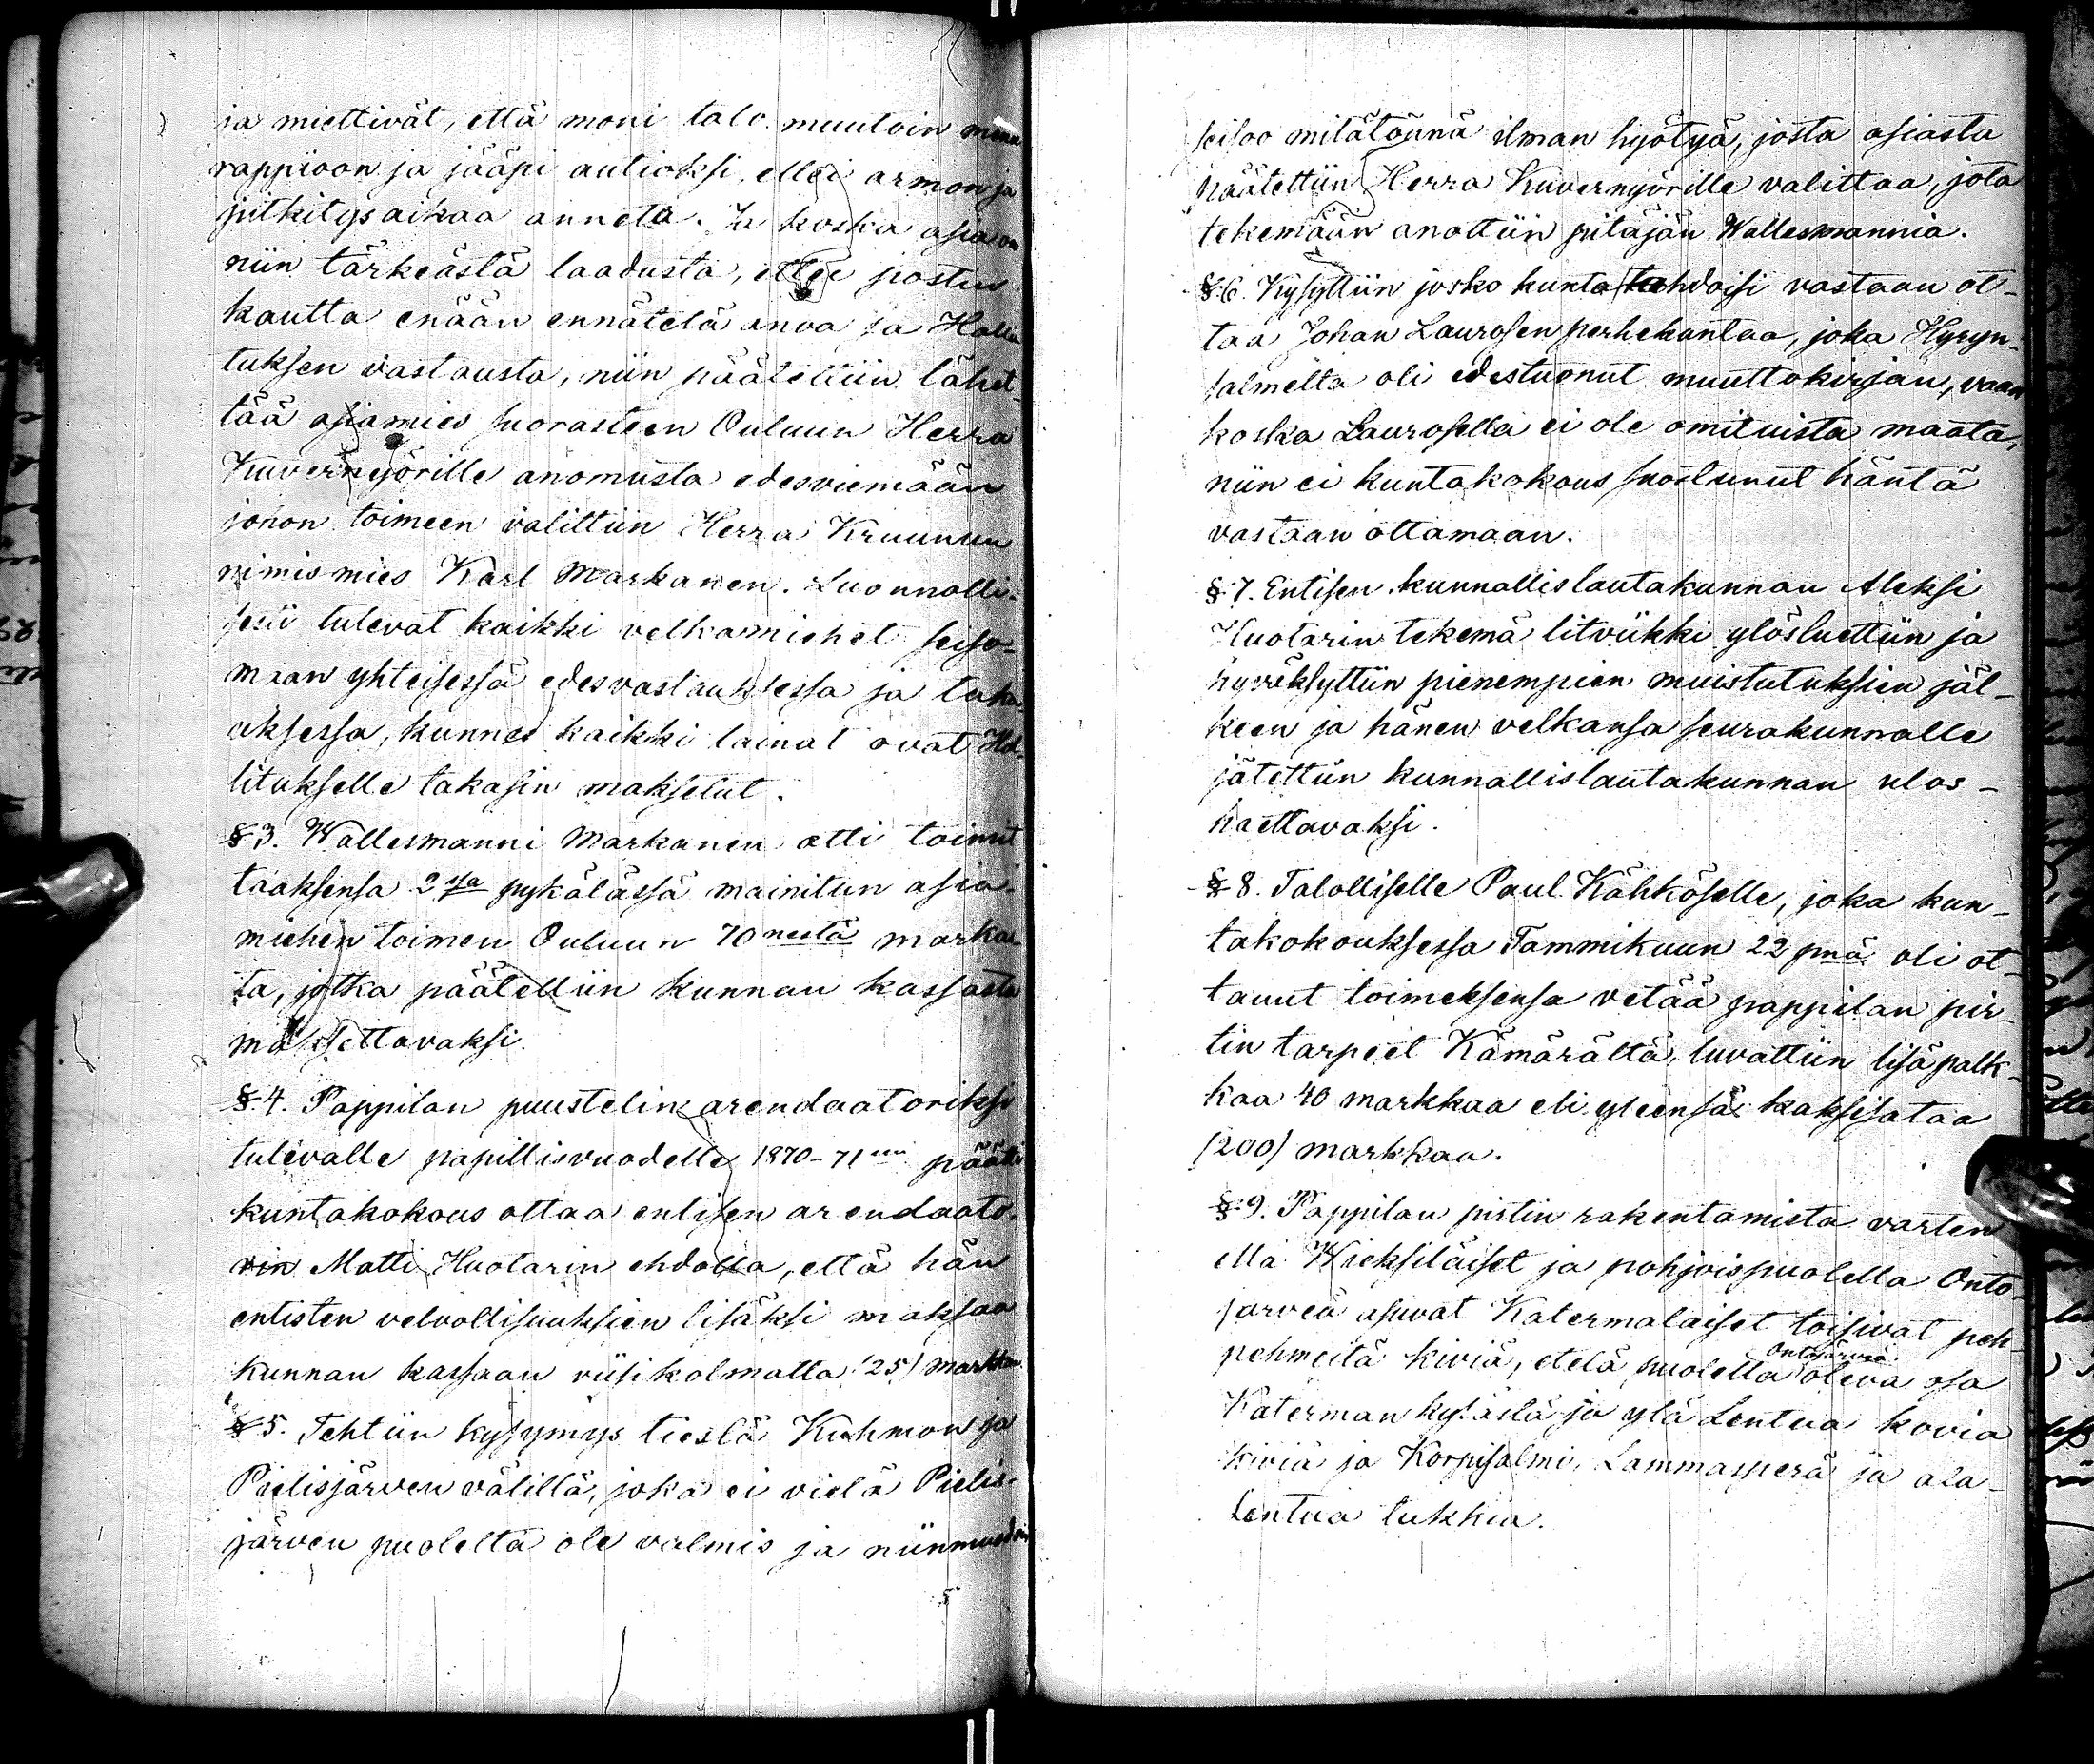 ja miettivät, että moni talo muutoin menee
rappioon ja jääpi autioksi, ellei armon ja
pitkitysaikaa anneta. Ja koska asia on
niin tärkeästä laadusta, ettei postin
kautta enään ennätetä anoa ja Halli-
tuksen vastausta, niin päätettiin lähet-
tää asiamies suorasteen Ouluun Herra
Kuvernyörille anomusta edesviemään
johon toimeen valittiin Herra Kruunun
nimismies Karl Markanen. Luonnolli-
sesti tulevat kaikki velkamiehet seiso-
maan yhteisessä edesvastauksessa ja taka-
uksessa, kunnes kaikki lainat ovat Hal-
litukselle takasin maksetut.
§ 3. Wallesmanni Markanen otti toimit
taaksensa 2ssa pykälässä mainitun asia-
miehen toimen Ouluun 70nestä markas-
ta, jotka päätettiin kunnan kassasta
maksettavaksi.
§. 4. Pappilan puustelin arendaatoriksi
tulevalle papillisvuodelle 1870-71 päätti
kuntakokous ottaa entisen arendaato-
rin Matti Huotarin ehdolla, että hän
entisten velvollisuuksien lisäksi maksaa
kunnan kassaan viisikolmatta (25) markkaa.
§ 5. Tehtiin kysymys tiestä Kuhmon ja
Pielisjärven välillä, joka ei vielä Pielis-
järven puolelta ole valmis ja niinmuodoin
5
seisoo mitätönnä ilman hyötyä, josta asiasta
päätettiin Herra Kuvernyörille valittaa, jota
tekemään anottiin pitäjän Wallesmannia.
§ 6. Kysyttiin josko kunta tahdoisi vastaan ot-
taa Johan Laurosen perhekuntaa, joka Hyryn-
salmelta oli edestuonut muuttokirjan, vaan
koska Laurosella ei ole omituista maata,
niin ei kuntakokous suostunut häntä
vastaan ottamaan.
§. 7. Entisen kunnallislautakunnan Aleksi
Huotarin tekemä litviikki ylösluettiin ja
hyväksyttiin pienempien muistutuksien jäl-
keen ja hänen velkansa seurakunnalle
jätettiin kunnallislautakunnan ulos-
haettavaksi.
§ 8. Talolliselle Paul Kähköselle, joka kun-
takokouksessa Tammikuun 22 pnä oli ot-
tanut toimeksensa vetää pappilan pir-
tin tarpeet Kämärältä, luvattiin lisäpalk-
kaa 40 markkaa eli yleensä kaksisataa
(200) markkaa.
§. 9. Pappilan pirtin rakentamista varten
että Wieksiläiset ja pohjoispuolella Onto-
järveä asuvat Katermalaiset toisivat peh-
pehmeitä kiviä, etelä puolella Ontojärveä oleva osa
Katerman kylästä ja ylä Lentua kovia
kiviä ja Korpisalmi, Lammasperä ja ala-
Lentua tukkia.